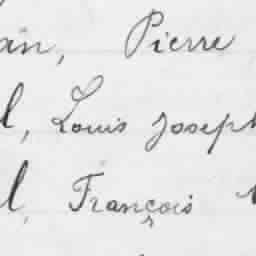 Pierre
Louis Joseph
François